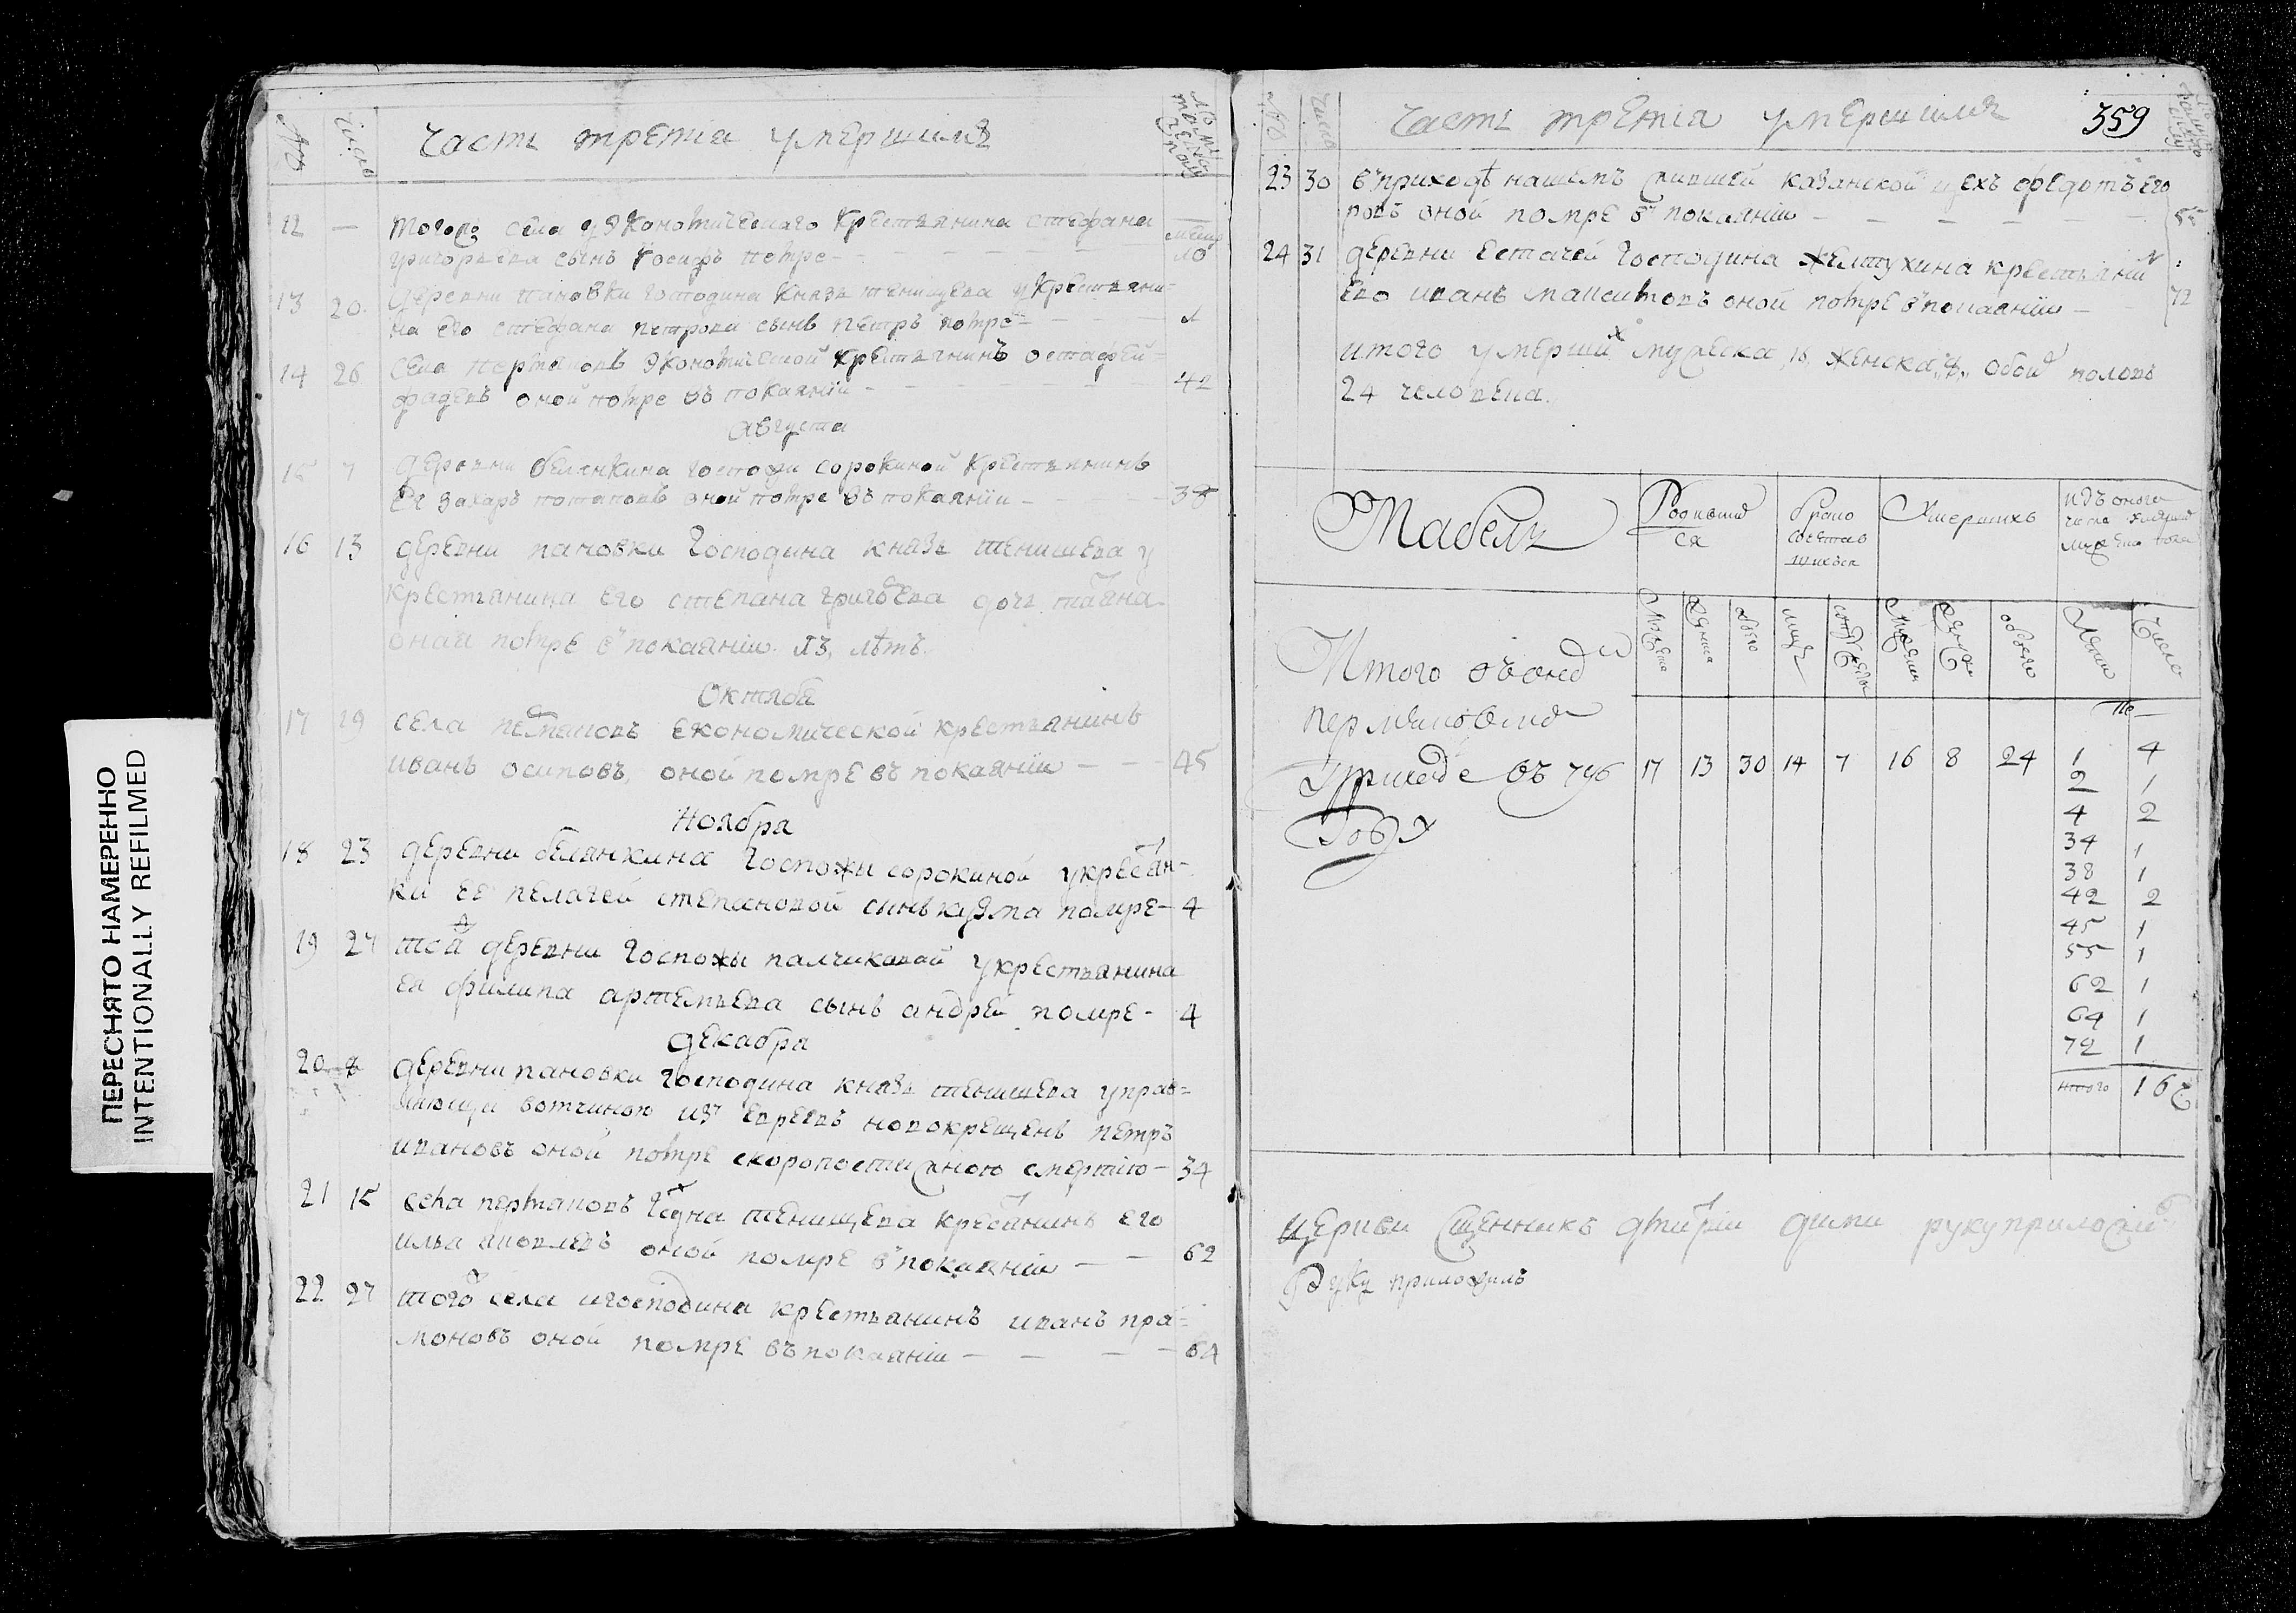 ПЕРЕСНЯТО НАМЕРЕННО
INTENTIONALLY REFILMED
№
число
часть третiа умершимъ
12 — тогожъ села у Экономическаго крестьянина стефана
григорьева сынъ иосифъ помре — 10
13 20 деревни пановки господина князь тенишева у крестьяни=
на его стефана петрова сынъ петръ помре — 1
14 26 села пермяковъ экономической крестьянинъ остафей
фадеевъ оной помре въ покаянiи — 42
августа
15 7 деревни белянкина госпожи сорокиной крестьянинъ
ея захаръ потаповъ оной помре въ покаянiи — 38
16 13 деревни пановки господина князь тенишева у
крестьянина его степана григоева дочь
оная помре в покаянiи лѣтъ.
Октяба
17 29 села экономической крестьянинъ
иванъ осиповъ, оной помре въ покаянiи — 45
Ноября
18 23 деревни белянкина госпожи сорокиной у кресян-
ки ее пелагеи степановой сынъ кузма помре — 4
19 27 той деревни госпожи палчиковой у крестьянина
ея филипа артемьева сынъ андрей помре — 4
декабра
20 8 деревни пановки господина князь тенишева управ=
вотчиною изъ евреевъ новокрещенъ петръ
ивановъ оной помре скоропостижною смертiю — 34
21 15 села пермяковъ гдна тенищева кресянинъ его
илья яковлевъ оной помре в покаянiи — 62
22 27 того села и господина крестьянинъ иванъ пра=
моновъ оной помре въ покаянiи — 64
№
число
часть третiа умершимъ 359
23 30 в приходѣ нашемъ жившей казанской цехъ федотъ его
ровъ оной помре в покаянiи — 55
24 31 деревни естачей господина желтухина крестьянин
его иванъ оной помре в покаянiи — 72
итого умерших мужеска 16 женска 8 обои половъ
24 человека.
Табель
Родившися
брако сочетавшихся
Умершихъ
изъ оного числа умерших мужеска пола
мужеска женска обоего мужеска женска обоего лета число
Итого въ
Приходе въ 796 17 13 30 14 7 16 8 24
Году
1 4
2 1
4 2
34 1
38 1
42 2
45 1
55 1
62 1
64 1
72 1
итого 16
церкви сщенникъ дмитрiи руку приложи
Руку приложилъ